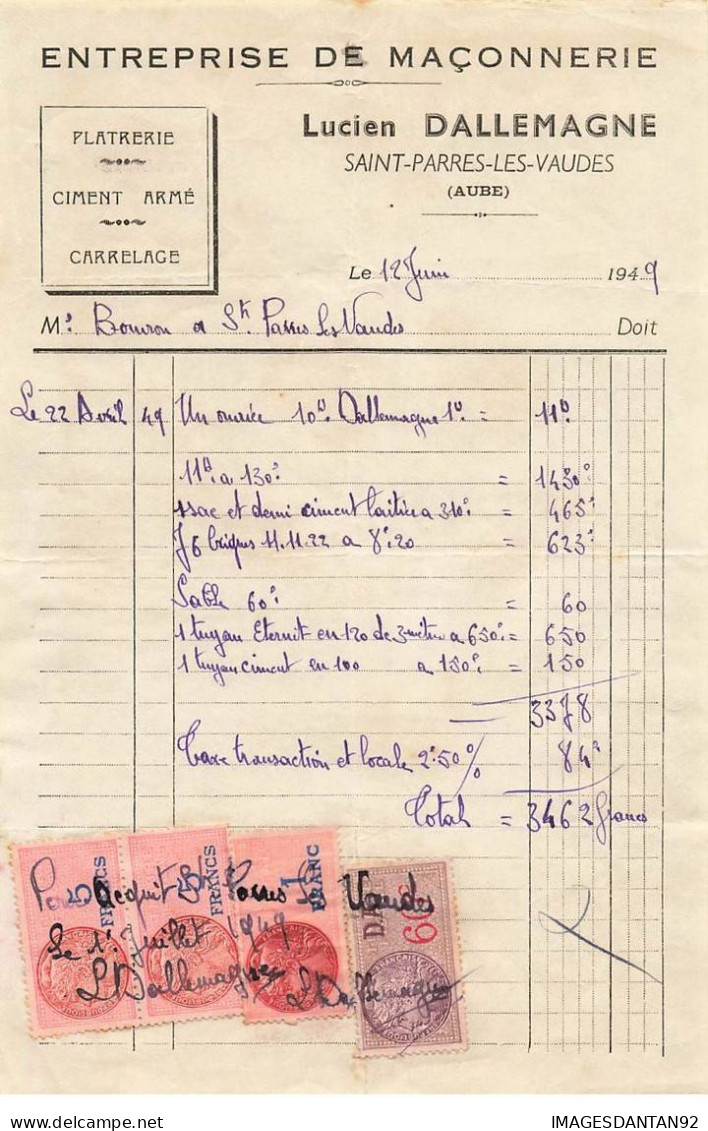 ENTREPRISE DE MAÇONNERIE
PLATRERIE
CIMENT ARMÉ
CARRELAGE
Lucien DALLEMAGNE
SAINT-PARRES-LES-VAUDES
(AUBE)
Le 12 Juin 1949
Mr Bouron a St Parres les Vaudes Doit
Le 22 Avril 49 Un ouvrié 10h Dallemagne 1h = 11h
11h a 130f = 1430f
1 sac et demi ciment laitier a 310f = 465f
76 briques 11.11.22 a 8f20 = 623f
Sable 60f = 60
1 tuyau Eternit en 120 de 3 mètres a 650f = 650
1 tuyau ciment en 100 a 150f = 150
3378
Taxe transaction et locale 2f50% 84f
Total = 3462 francs
5 FRANCS
5 FRANCS
1 FRANC
DA
60c
Pour acquit St Parres les Vaudes
Le 1er Juillet 1949
LDallemagne LDallemagne
IMAGESDANTAN92